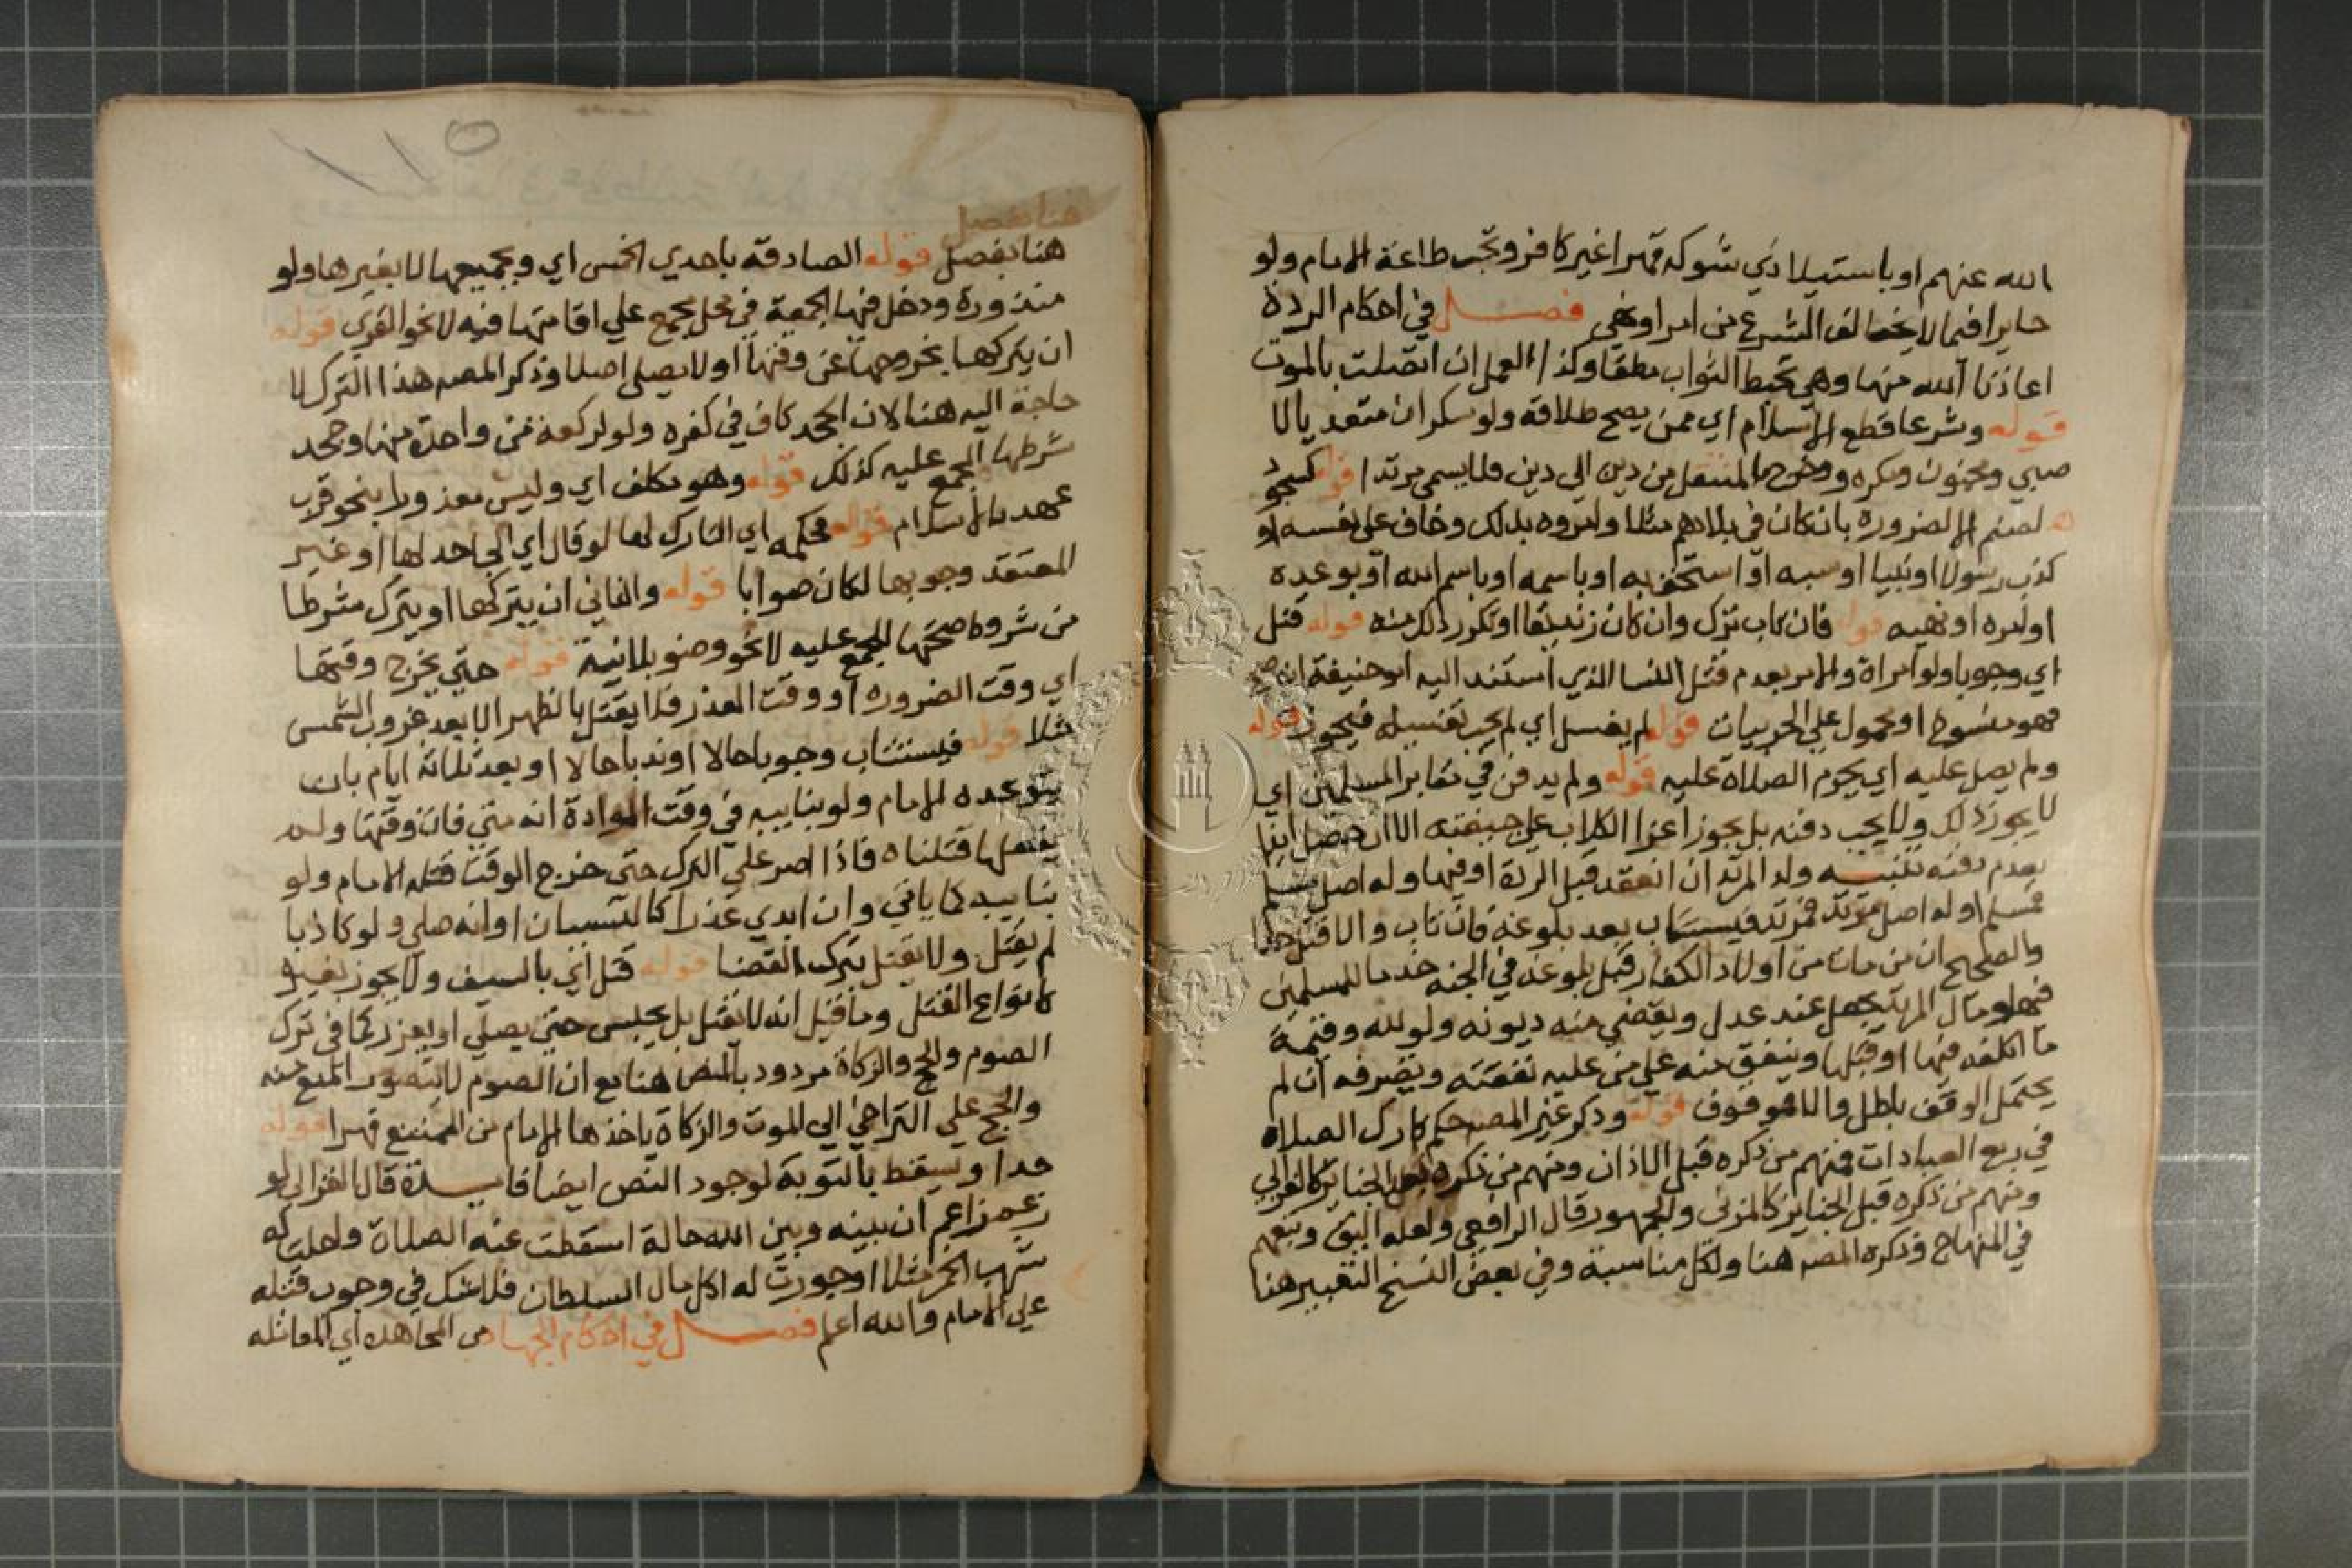 الله عنهم او باستيلا ذي شوكه قهرا غير كافر وتجب طاعة الامام ولو
جايرا فيما لا يخالف الشرع من امر او نهي فصل في احكام الردة
اعاذنا الله منها وهي تحبط الثواب مطقا وكذا العمل ان اتصلت بالموت
قوله وشرعا قطع الاسلام اي ممن يصح طلاقه ولو سكران متعديا لا
صبي ومجنون ومكره وخرج المنتقل من دين الي دين فلا يسمي مرتدا قوله كسجود
لصنم الا لضرورة بان كان في بلادهم مثلا وامروه بذلك وخاف علي نفسه او
كذب رسولا او نبيا او سبه او استخف به او باسمه او باسم الله او بوعيده
او امره او نهيه قوله فان تاب ترك وان كان زنديقا او تكرر ذلك منه قوله قتل
اي وجوبا ولو امراة والامر بعدم قتل النسا الذي استند اليه ابو حنيفة ان صح
فهو منسوخ او محمول علي الحربيات قوله لم يغسل اي لم يجب تغسيله فيجوز قوله
ولم يصل عليه اي يحرم الصلاة عليه قوله ولم يدفن في مقابر المسلمين اي
لا يجوز ذلك ولا يجب دفنه بل يجوز اغرا الكلاب علي جيفته الا ان حصل ايذا
بعدم دفنه تنبيه ولد المرتد ان انعقد قبل الردة او فيها وله اصل مسلم
فمسلم او له اصل مرتد فمرتد فيستتاب بعد بلوغه فان تاب والا قتل
والصحيح ان من مات من اولاد الكفار قبل بلوغه في الجنه خدما للمسلمين
فيها ومال المرتد يجعل عند عدل ويقضي منه ديونه ولو لله وقيمة
ما اتلفه فيها او قبلها وينفق منه علي من عليه نفقته وتصرفه ان لم
يحتمل الوقف باطل والا فموقوف قوله وذكر غير المصـ حكم تارك الصلاة
في ربع العبادات فمنهم من ذكره قبل الاذان ومنهم من ذكره بعد الجنايز كالغزالي
ومنهم من ذكره قبل الجنايز كالمزني والجمهور قال الرافعي ولعله اليق وتبعهم
في المنهاج وذكره المصـ هنا ولكل مناسبة وفي بعض النسخ التعبير هنا
هنا بفصل
هنا بفصل قوله الصادقة باحدي الخمس اي وبجميعها لا بغيرها ولو
منذورة ودخل فيها الجمعة في محل يجمع علي اقامتها فيه لا نحو القري قوله
ان يتركها بخروجها عن وقتها او لا يصلي اصلا وذكر المصـ هذا الترك لا
حاجة اليه هنا لان الجحد كاف في كفره ولو لركعة من واحدة منها وجحد
شرطها المجمع عليه كذلك قوله وهو مكلف اي وليس معذورا بنحو قرب
عهد بالاسلام قوله فحكمه اي التارك لها لو قال اي الجاحد لها او غير
المعتقد وجوبها لكان صوابا قوله والثاني ان يتركها او يترك شرطا
من شروط صحتها المجمع عليه لا نحو وضو بلا نية قوله حتي يخرج وقتها
اي وقت الضرورة او وقت العذر فلا يقتل بالظهر الا بعد غروب الشمس
مثلا قوله فيستتاب وجوبا حالا او ندبا حالا او بعد ثلاثة ايام بان
يتوعده الامام ولو بنايبه في وقت الموادة انه متي فات وقتها ولم
يفعلها قتلناه فاذا اصر علي الترك حتي خرج الوقت قتله الامام ولو
بنايبه كما ياتي وان ابدي عذرا كالنسيان او انه صلي ولو كاذبا
لم يقتل ولا يقتل بترك القضا قوله قتل اي بالسيف ولا يجوز بغيره
لانواع القتل وما قيل انه لا يقتل بل يحبس حتي يصلي او يعزر كما في ترك
الصوم والحج والزكاة مردود بالنص هنا مع ان الصوم لا يتصور المنع منه
والحج علي التراخي الي الموت والزكاة ياخذها الامام من الممتنع قهرا قوله
حدا ويسقط بالتوبة لوجود النص ايضا فايدة قال الغزالي لو
زعم زاعم ان بينه وبين الله حالة اسقطت عنه الصلاة واحلت له
شرب الخمر مثلا او جوزت له اكل مال السلطان فلا شك في وجوب قتله
علي الامام والله اعلم فصل في احكام الجهاد من المجاهدة اي المقاتله